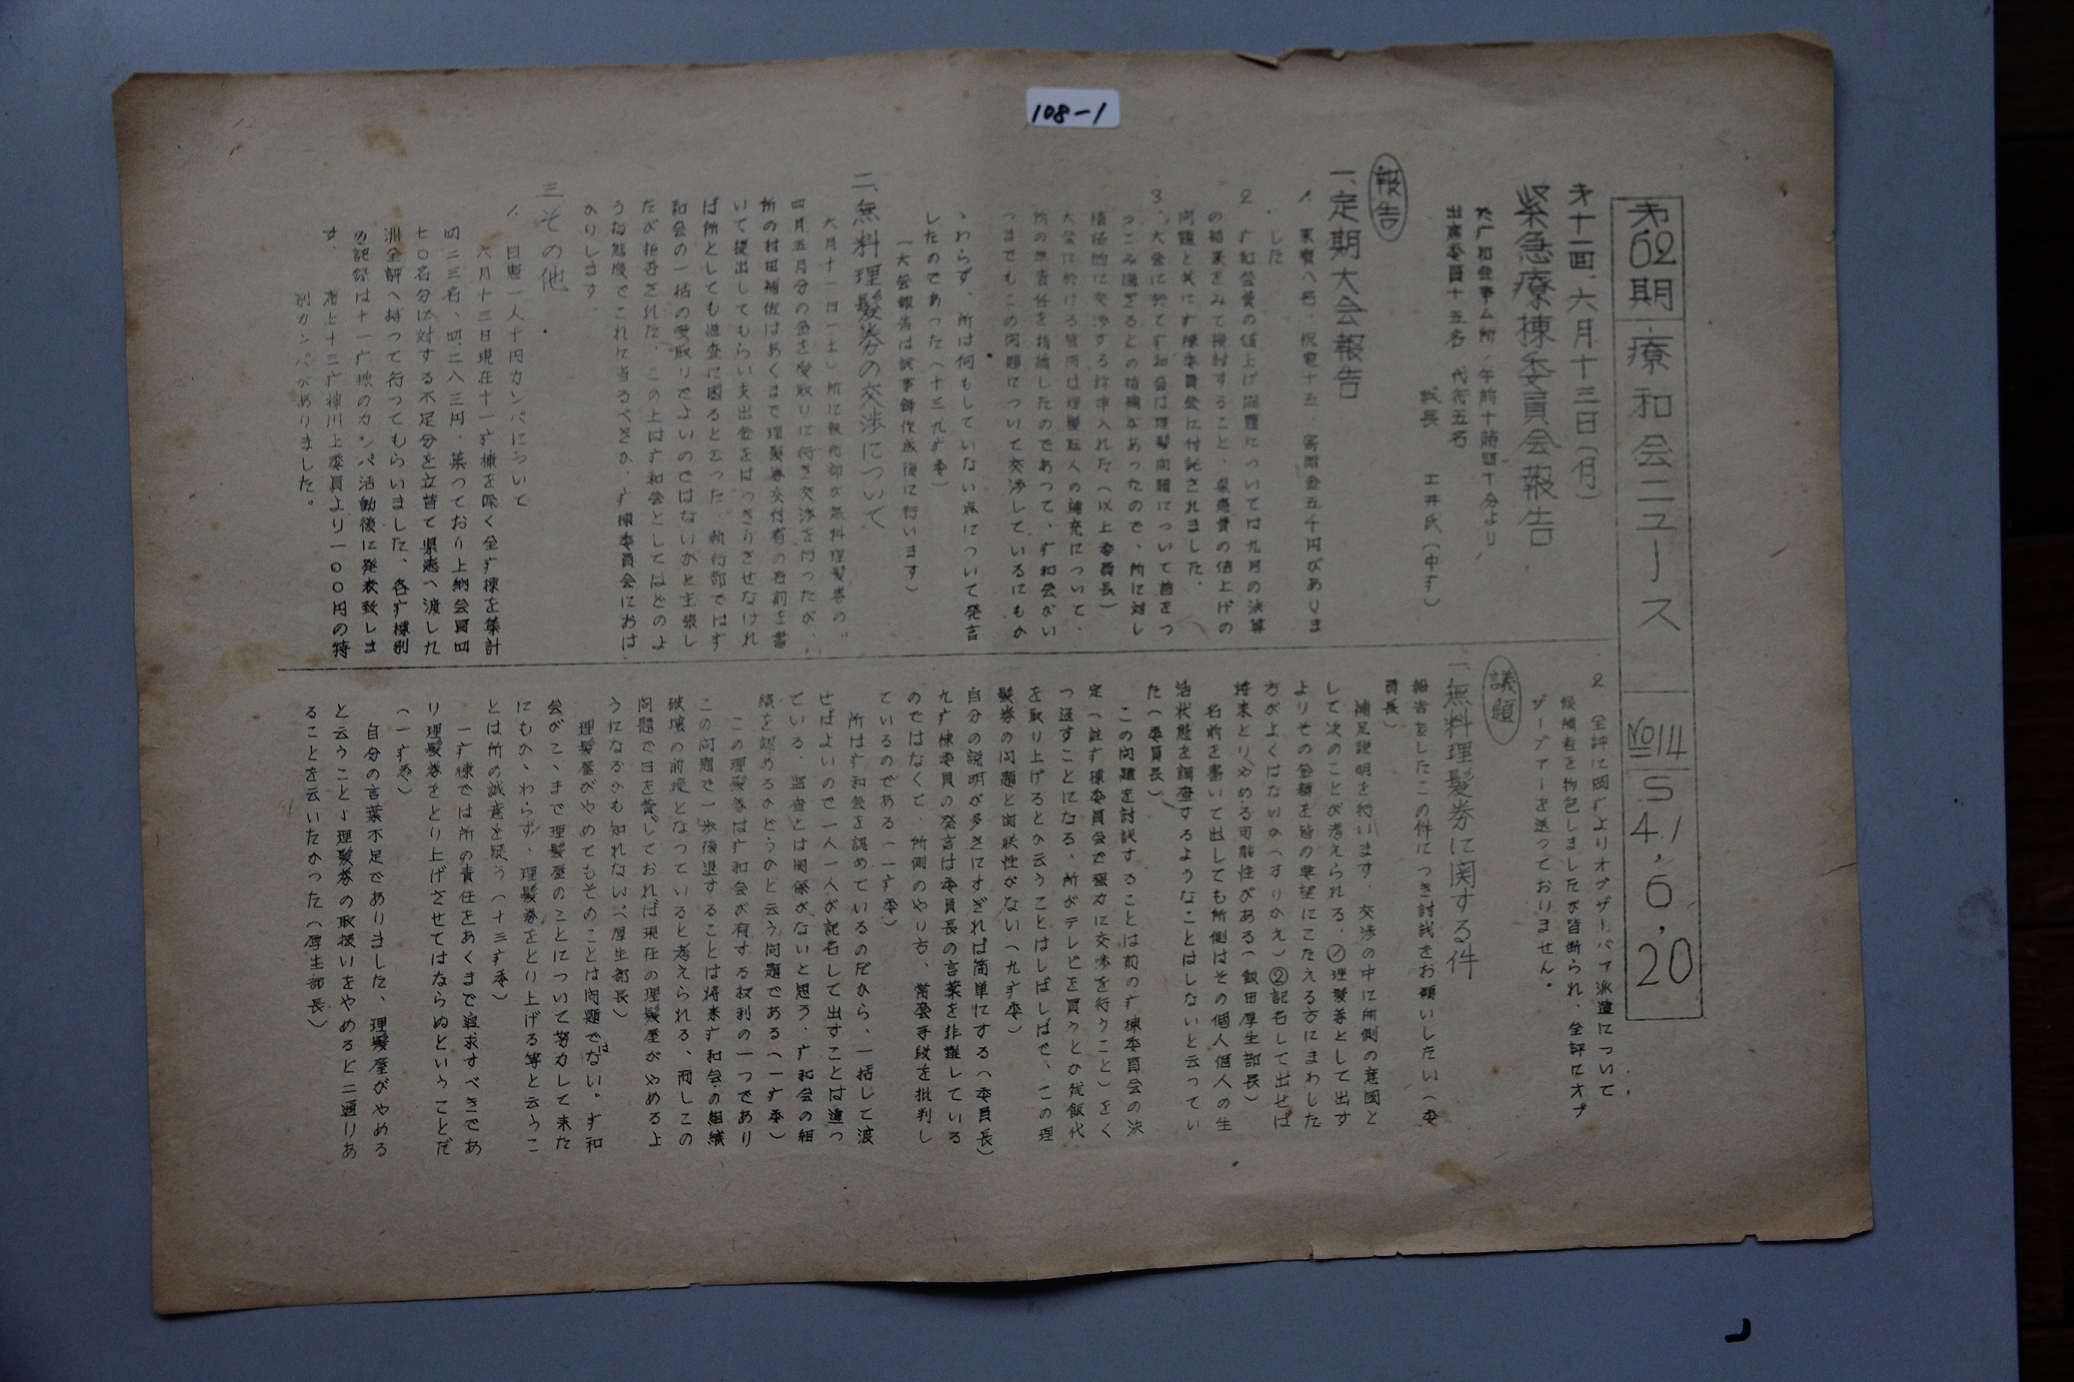 108-1
才62期
療和会ニュース
No14
S41,6,20
才十一回、六月十三日(月)
緊急療棟委員会報告
於疒和会事ム所／午前十時四十分より
出席委員十五名 代行五名
議長 土井氏(中疒)
報告
一、定期大会報告
1. 来賓八名、祝電十五、寄附金五千円がありま
した
2. 疒和会費の値上げ問題については九月の決算
の結果をみて検討すること、県患費の値上げの
問題と共に疒棟委員会に付託されました。
3. 大会に於て疒和会は理髪問題について首をつ
っこみ過ぎるとの指摘があったので、所に対し
積極的に交渉する様申入れた(以上委員長)
大会に於ける質問は理髪職人の補充について、
所の無責任を指摘したのであって、疒和会がい
つまでもこの問題について交渉しているにもか
ゝわらず、所は何もしていない点について発言
したのであった(十三九疒委)
(大会報告は議事録作成後に行います)
二、無料理髪券の交渉について
六月十一日(土)所に執行部が無料理髪券の
四月五月分の金を受取りに行き交渉を行ったが、
所の村田補佐はあくまで理髪券交付者の名前を書
いて提出してもらい支出金をはっきりさせなけれ
ば所としても監査に困ると云った。執行部では疒
和会の一括の受取りでよいのではないかと主張し
たが拒否された。この上は疒和会としてはどのよ
うな態度でこれに当るべきか、疒棟委員会におは
かりします。
三 その他
1. 日患一人十円カンパについて
六月十三日現在十一疒棟を除く全疒棟を集計
四二三名、四、二八三円、集っており上納会員四
七〇名分に対する不足分を立替て県患へ渡し九
州全評へ持って行ってもらいました、各疒棟別
の記録は十一疒棟のカンパ活動後に発表致しま
す。 尚上十三疒棟川上委員より一〇〇円の特
別カンパがありました。
2 全評に困疒よりオブザーバー派遣について
候補者を物色しましたが皆断られ、全評にオブ
ザーブァーを送っておりません。
議題
一、無料理髪券に関する件
報告をしたこの件につき討議をお願いしたい(委
員長)
補足説明を行います。交渉の中に所側の意図と
して次のことが考えられる、①理髪券として出す
よりその金額を皆の要望にこたえる方にまわした
方がよくはないか(すりかえ)②記名して出せば
将来とりやめる可能性がある(飯田厚生部長)
名前を書いて出しても所側はその個人個人の生
活状態を調査するようなことはしないと云ってい
た(委員長)
この問題を討議することは前の疒棟委員会の決
定(註疒棟委員会で強力に交渉を行うこと)をく
つ返すことになる、所がテレビを買うとか残飯代
を取り上げるとか云うことはしばしばで、この理
髪券の問題と関联性がない(九疒委)
自分の説明が多きにすぎれば簡単にする(委員長)
九疒棟委員の発言は委員長の言葉を非難している
のではなくて、所側のやり方、常套手段を批判し
ているのである(一疒委)
所は疒和会を認めているのだから、一括して渡
せばよいので一人一人が記名して出すことは違っ
ている、監査とは関係がないと思う、疒和会の組
織を認めるかどうかと云う問題である(一疒委)
この理髪券は疒和会が有する权利の一つであり
この問題で一歩後退することは将来疒和会の組織
破壊の前提となっていると考えられる、而しこの
問題で日を費しておれば現在の理髪屋がやめるよ
うになるかも知れない(厚生部長)
理髪屋がやめてもそのことは問題ではない。疒和
会がこゝまで理髪屋のことについて努力して来た
にもかゝわらず、理髪券をとり上げる等と云うこ
とは所の誠意を疑う(十三疒委)
一疒棟では所の責任をあくまで追求すべきであ
り理髪券をとり上げさせてはならぬということだ
(一疒委)
自分の言葉不足でありました、理髪屋がやめる
と云うことゝ理髪券の取扱いをやめると二通りあ
ることを云いたかった(厚生部長)